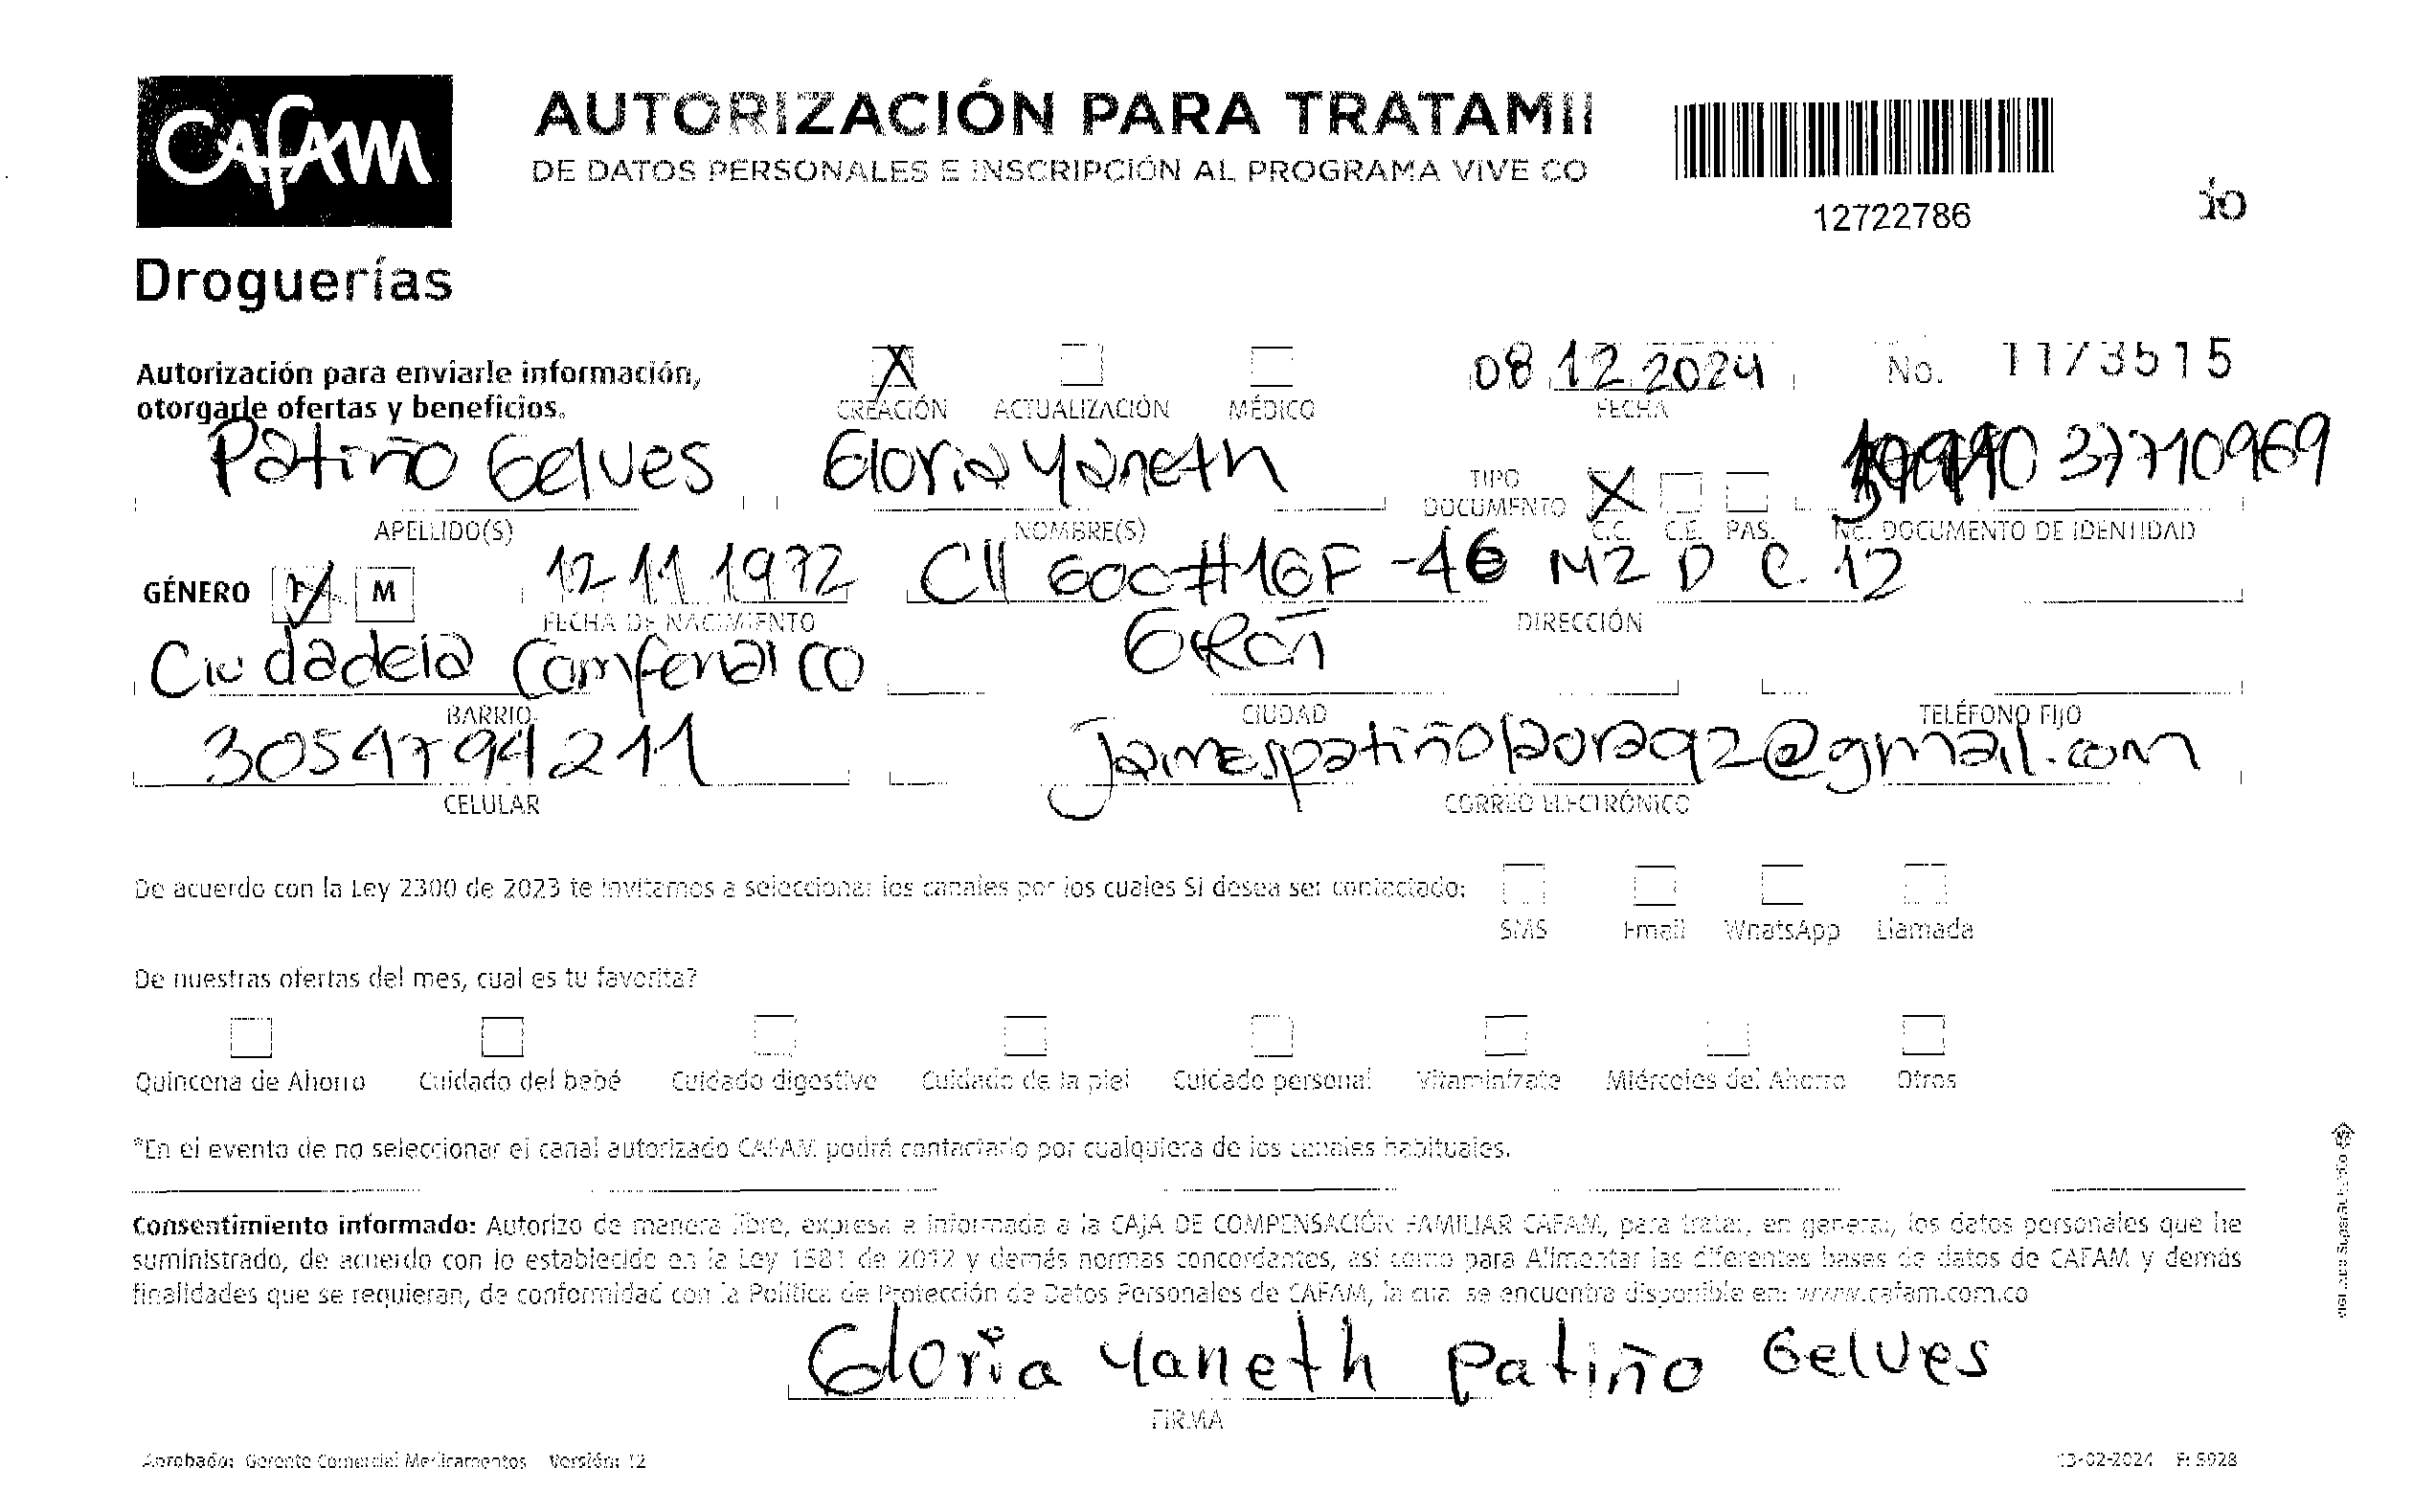 Cafam
AUTORIZACIÓN PARA TRATAMI
DE DATOS PERSONALES E INSCRIPCIÓN AL PROGRAMA VIVE CO
12722786
Droguerías
Autorización para enviarle información,
otorgarle ofertas y beneficios.
X
CREACIÓN ACTUALIZACIÓN MÉDICO
08 12 2024
FECHA
No. 1173515
Patiño Gelves Gloria Yaneth
TIPO DOCUMENTO X C.C. C.E. PAS. 37710969
APELLIDO(S) NOMBRE(S) No. DOCUMENTO DE IDENTIDAD
GÉNERO F M 12 11 1972 Cll 60C #16F -46 MZ D C. 12
FECHA DE NACIMIENTO DIRECCIÓN
Ciudadela Comfenalco Girón
BARRIO CIUDAD TELÉFONO FIJO
3054794211 jaimespatiñolaura92@gmail.com
CELULAR CORREO ELECTRÓNICO
De acuerdo con la Ley 2300 de 2023 te invitamos a seleccionar los canales por los cuales SI desea ser contactado:
SMS Email WhatsApp Llamada
De nuestras ofertas del mes, cual es tu favorita?
Quincena de Ahorro Cuidado del bebé Cuidado digestivo Cuidado de la piel Cuidado personal Vitamínízate Miércoles del Ahorro Otros
*En el evento de no seleccionar el canal autorizado CAFAM podrá contactarlo por cualquiera de los canales habituales.
Consentimiento informado: Autorizo de manera libre, expresa e informada a la CAJA DE COMPENSACIÓN FAMILIAR CAFAM, para tratar, en general, los datos personales que he
suministrado, de acuerdo con lo establecido en la Ley 1581 de 2012 y demás normas concordantes, así como para Alimentar las diferentes bases de datos de CAFAM y demás
finalidades que se requieran, de conformidad con la Política de Protección de Datos Personales de CAFAM, la cual se encuentra disponible en: www.cafam.com.co
Gloria Yaneth Patiño Gelves
FIRMA
Aprobado: Gerente Comercial Medicamentos Versión: 12
13-02-2024 F: 5928